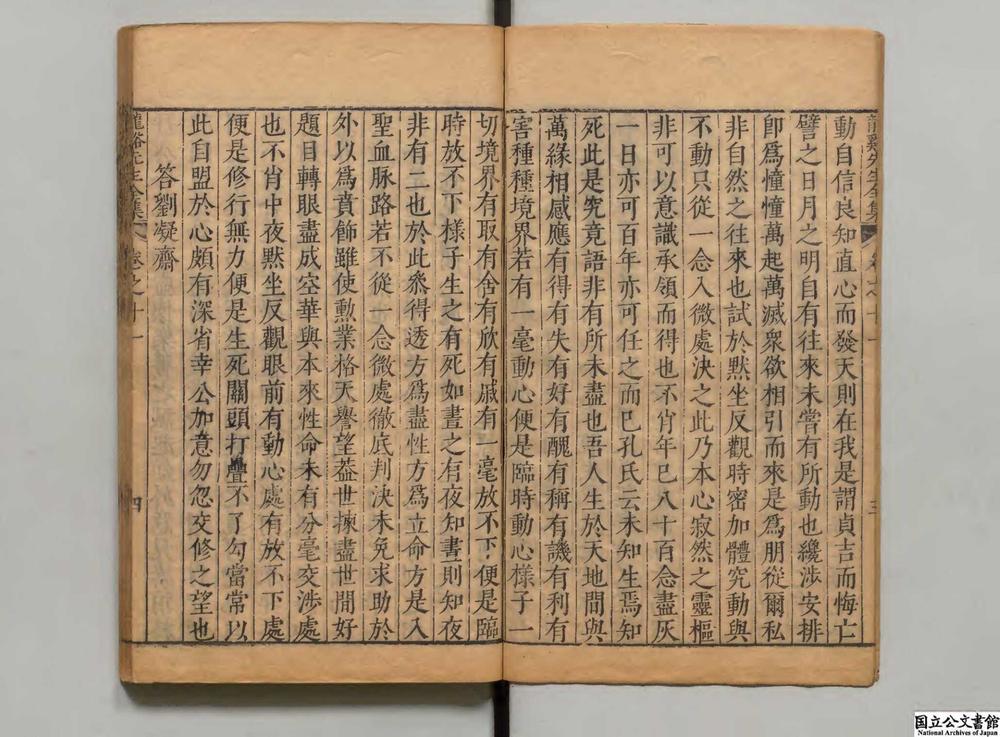 動自信良知直心而發天則在我是謂貞吉而悔亡
譬之日月之明自有往來未嘗有所動也纔涉安排
卽爲憧憧萬起萬滅衆欲相引而來是爲朋從爾私
非自然之往來也試於默坐反觀時密加體究動與
不動只從一念入微處決之此乃本心寂然之靈樞
非可以意識承領而得也不肖年已八十百念盡灰
一日亦可百年亦可任之而已孔氏云未知生焉知
死此是究竟語非有所未盡也吾人生於天地間與
萬緣相感應有得有失有好有醜有稱有譏有利有
害種種境界若有一毫動心便是臨時動心樣子一
切境界有取有舍有欣有戚有一毫放不下便是臨
時放不下樣子生之有死如晝之有夜知晝則知夜
非有二也於此叅得透方爲盡性方爲立命方是入
聖血脉路若不從一念微處徹底判決未免求助於
外以爲賁飾雖使勳業格天譽望葢世揀盡世間好
題目轉眼盡成空華與本來性命未有分毫交涉處
也不肖中夜默坐反觀眼前有動心處有放不下處
便是修行無力便是生死關頭打疊不了勾當常以
此自盟於心頗有深省幸公加意勿忽交修之望也
答劉凝齋
龍谿先生全集
卷之十一
三
龍谿先生全集
卷之十一
四
国立公文書館
National Archives of Japan